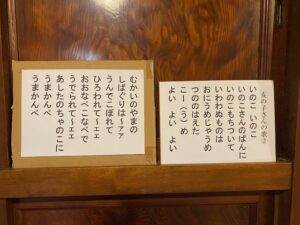 亥の子さんの歌②
いのこ いのこ
いのこさんのばんに
いのこもちついて
いわわぬものは
おにうめじゃうめ
つののはえた
こー(う)め
よい よい よい
むかいのやまの
しばぐりは〜アァ
うんでこぼれて
ひろわれて〜エェ
おおなべこなべで
うでられて〜エェ
あしたのちゃのこに
うまかんべ
うまかんべ